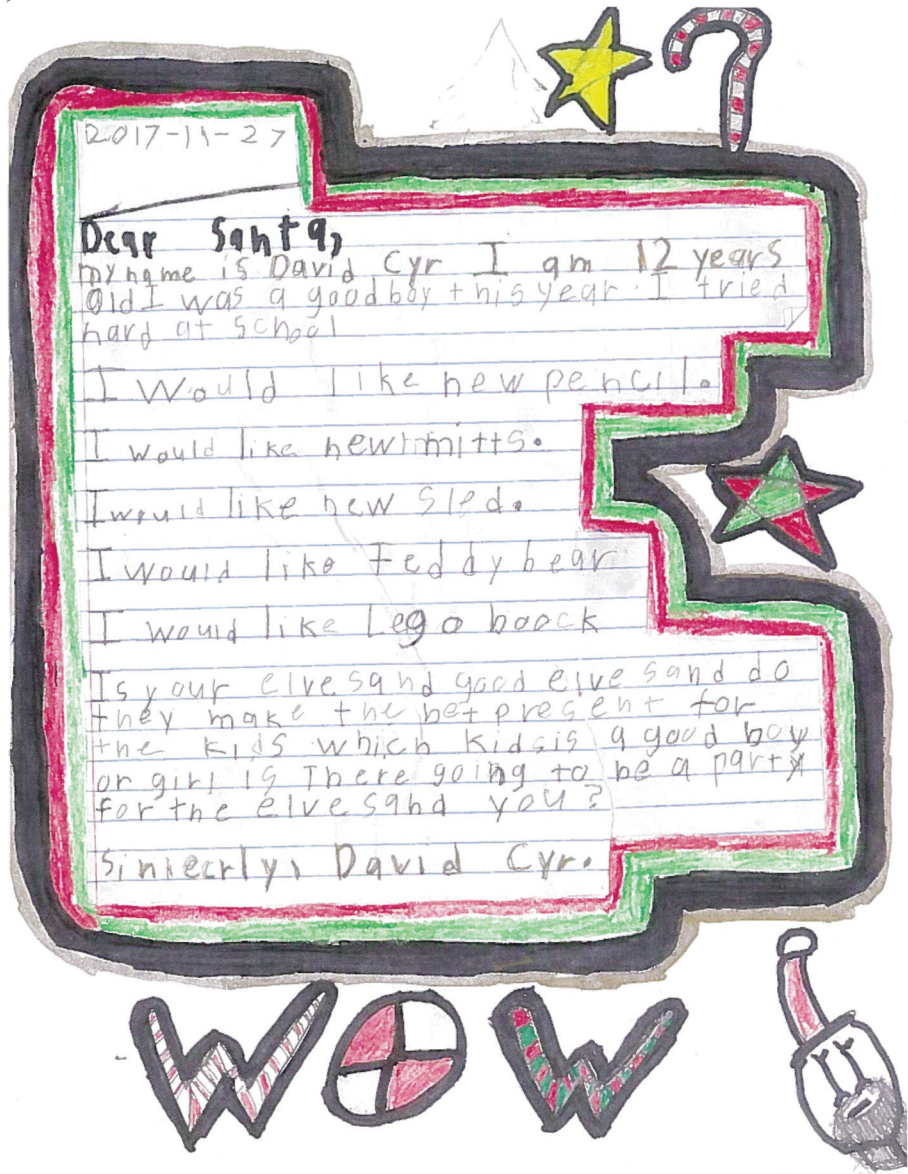 2017-11-27
Dear Santa,
my name is David Cyr I am 12 years
old I was a good boy this year. I tried
hard at school
I would like new pencil.
I would like new mitts.
I would like new sled.
I would like teddy bear
I would like Lego boock
Is your elves and good elve sand do
they make the bet present for
the kids which kids is a good boy
or girl is There going to be a party
for the elve sand you?
Sinlecrly, David Cyr.
WOW